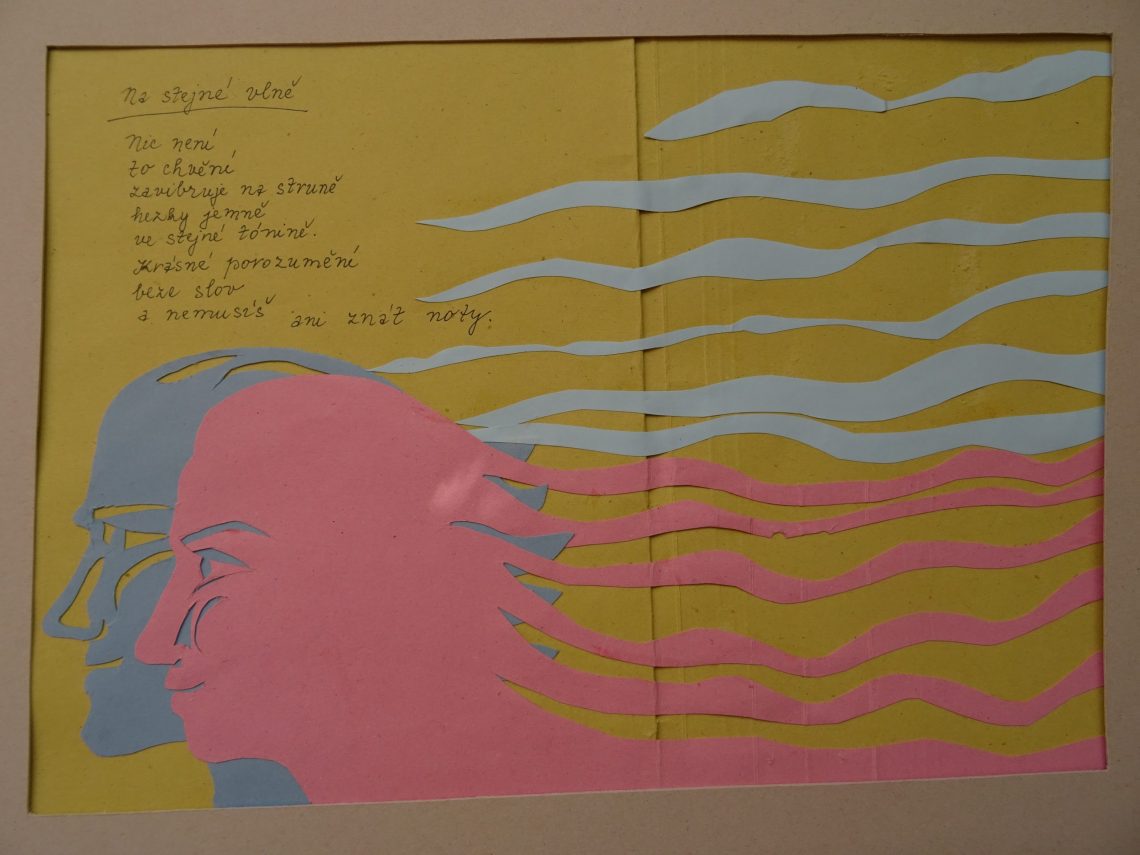 Na stejné vlně
Nic není
to chvění
zavibruje na struně
hezky jemně
ve stejné tónině.
Krásné porozumění
beze slov
a nemusíš ani znát noty.